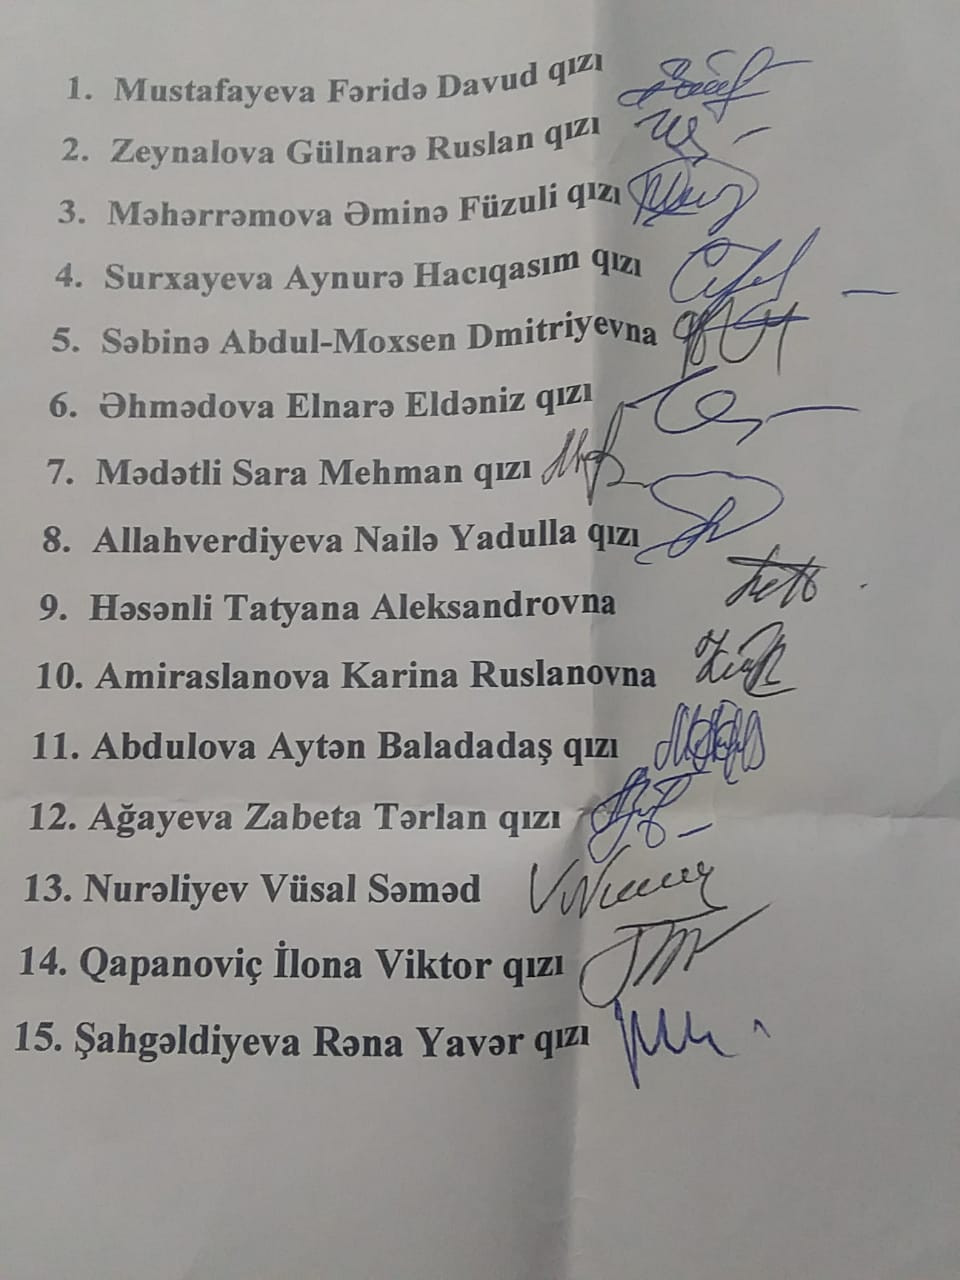 1. Mustafayeva Fəridə Davud qızı
2. Zeynalova Gülnarə Ruslan qızı
3. Məhərrəmova Əminə Füzuli qızı
4. Surxayeva Aynurə Hacıqasım qızı
5. Səbinə Abdul-Moxsen Dmitriyevna
6. Əhmədova Elnarə Eldəniz qızı
7. Mədətli Sara Mehman qızı
8. Allahverdiyeva Nailə Yadulla qızı
9. Həsənli Tatyana Aleksandrovna
10. Amiraslanova Karina Ruslanovna
11. Abdulova Aytən Baladadaş qızı
12. Ağayeva Zabeta Tərlan qızı
13. Nurəliyev Vüsal Səməd
14. Qapanoviç İlona Viktor qızı
15. Şahgəldiyeva Rəna Yavər qızı